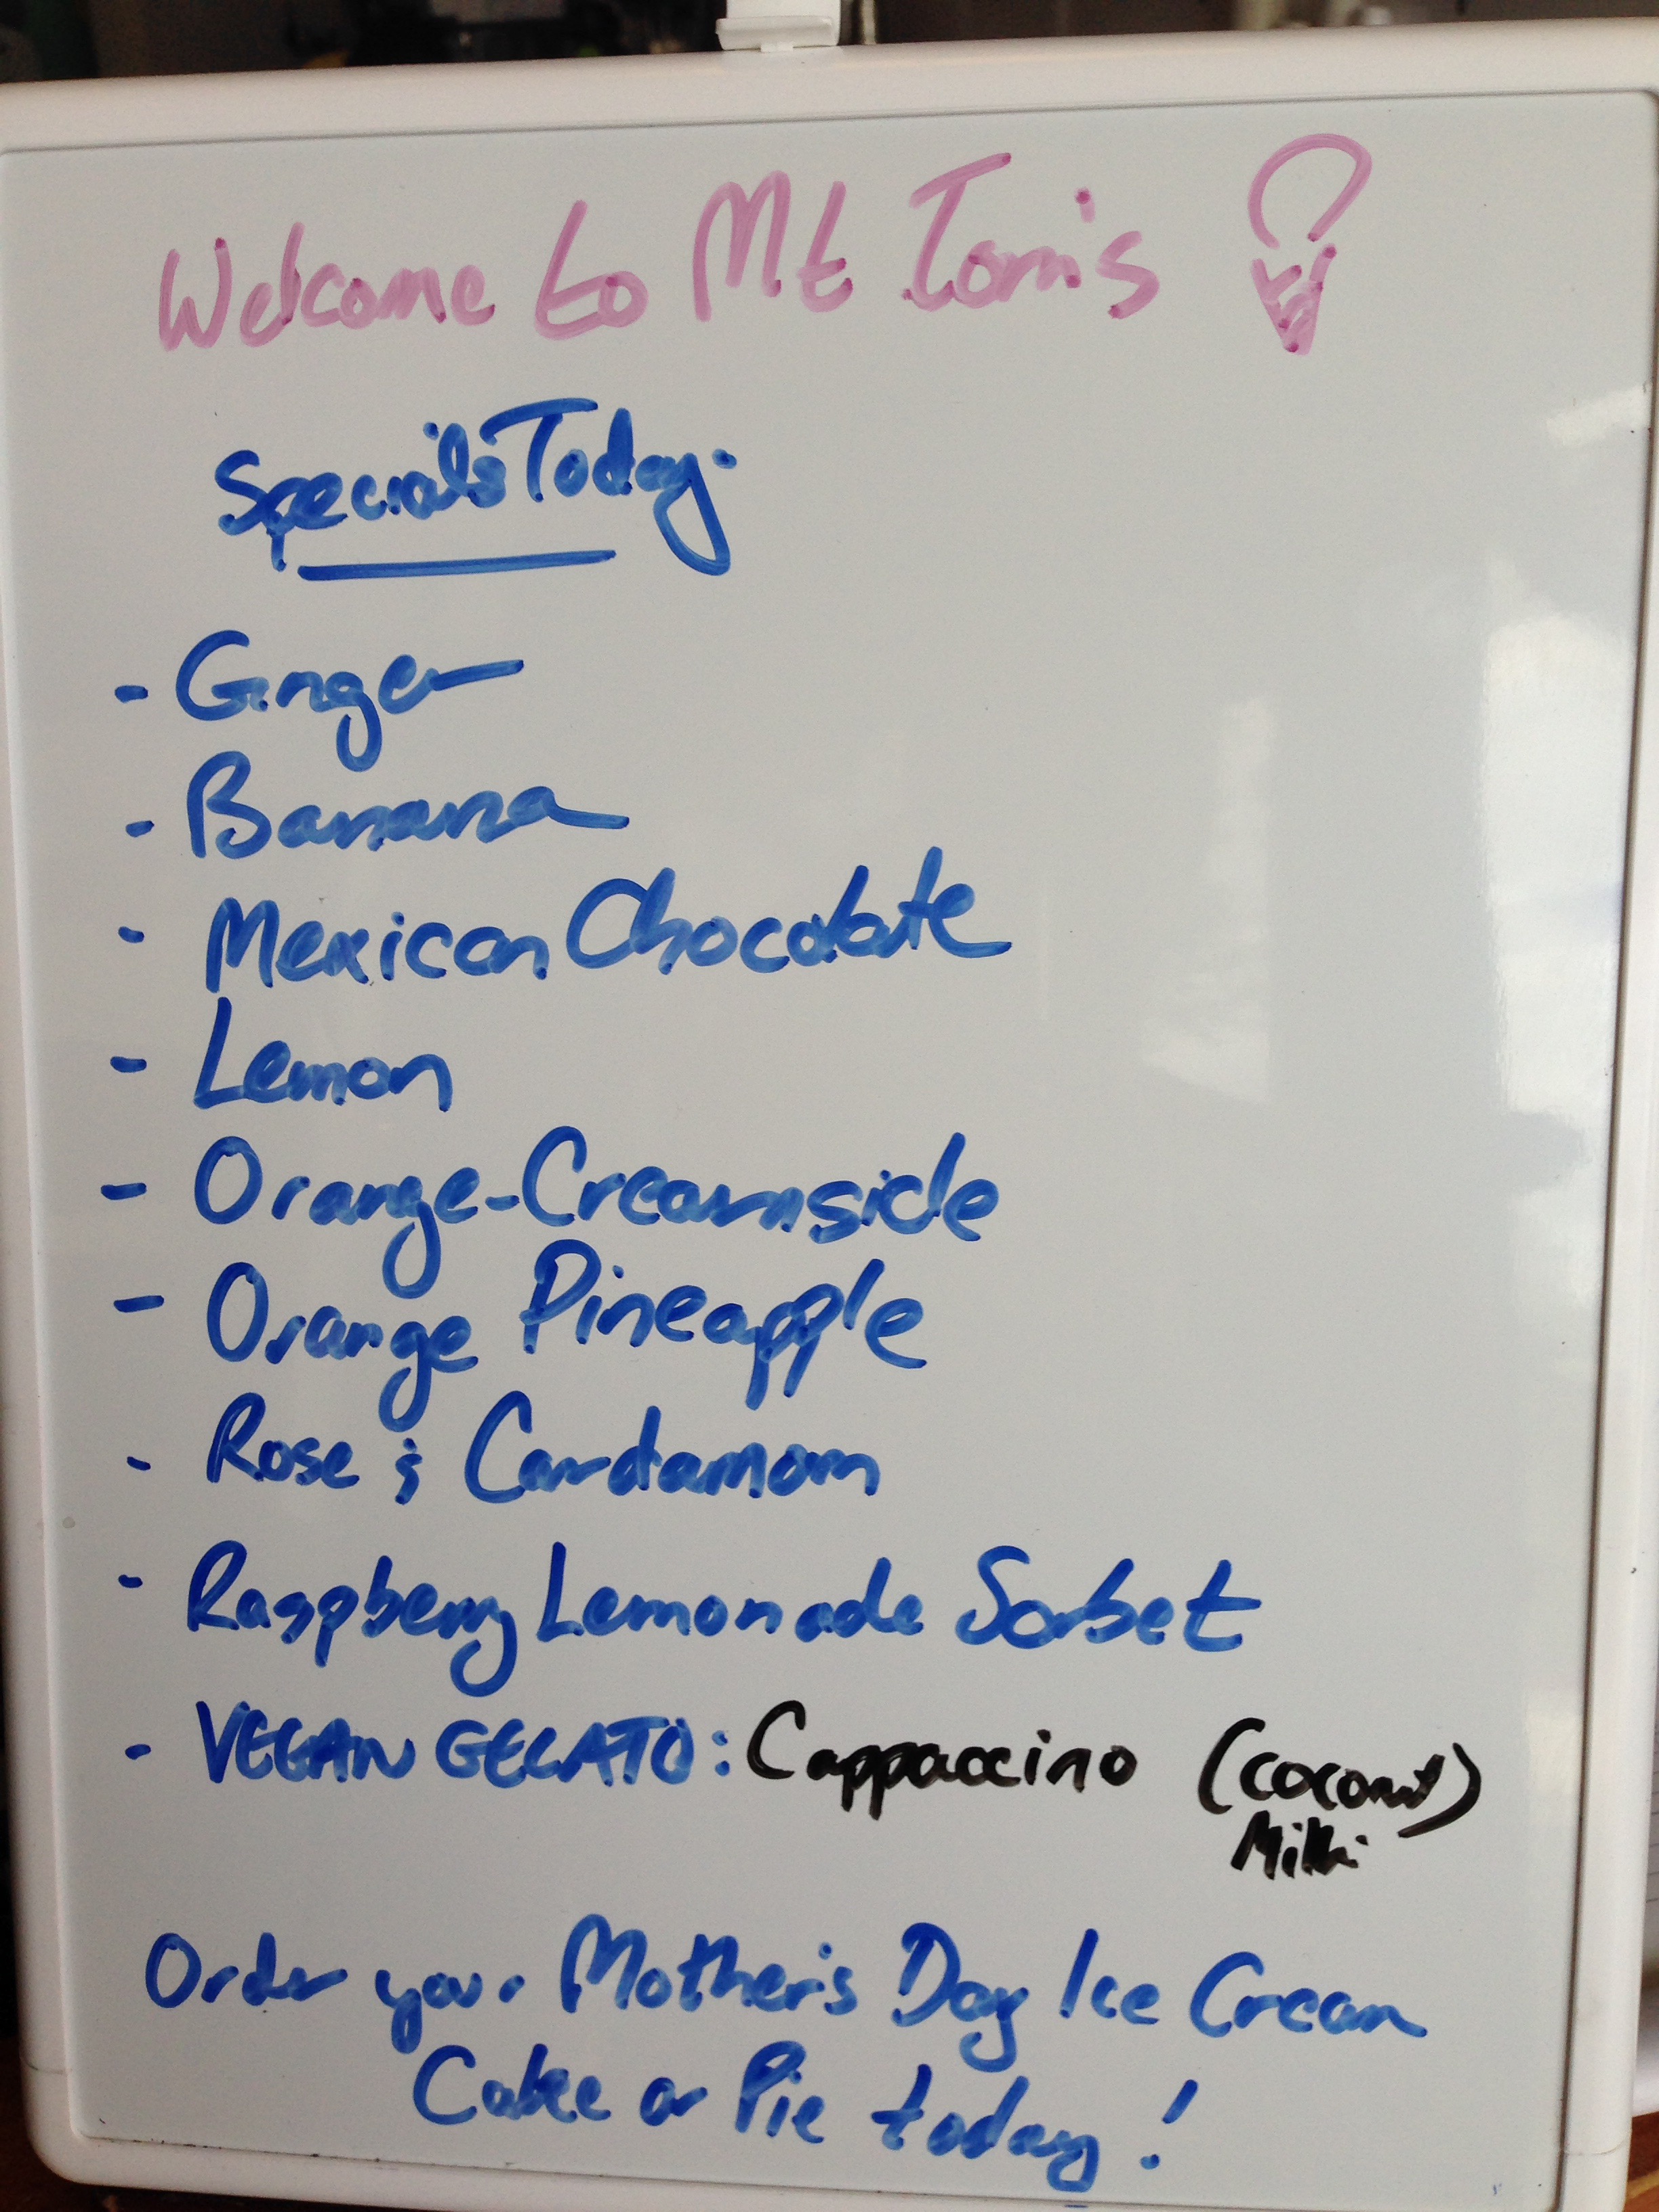 Welcome to Mt Tom's
Specials Today:
- Ginger
- Banana
- Mexican Chocolate
- Lemon
- Orange-Creamsicle
- Orange Pineapple
- Rose & Cardamom
- Raspberry Lemonade Sorbet
- VEGAN GELATO: Cappuccino (coconut)
Milk
Order your Mother's Day Ice Cream
Cake or Pie today!